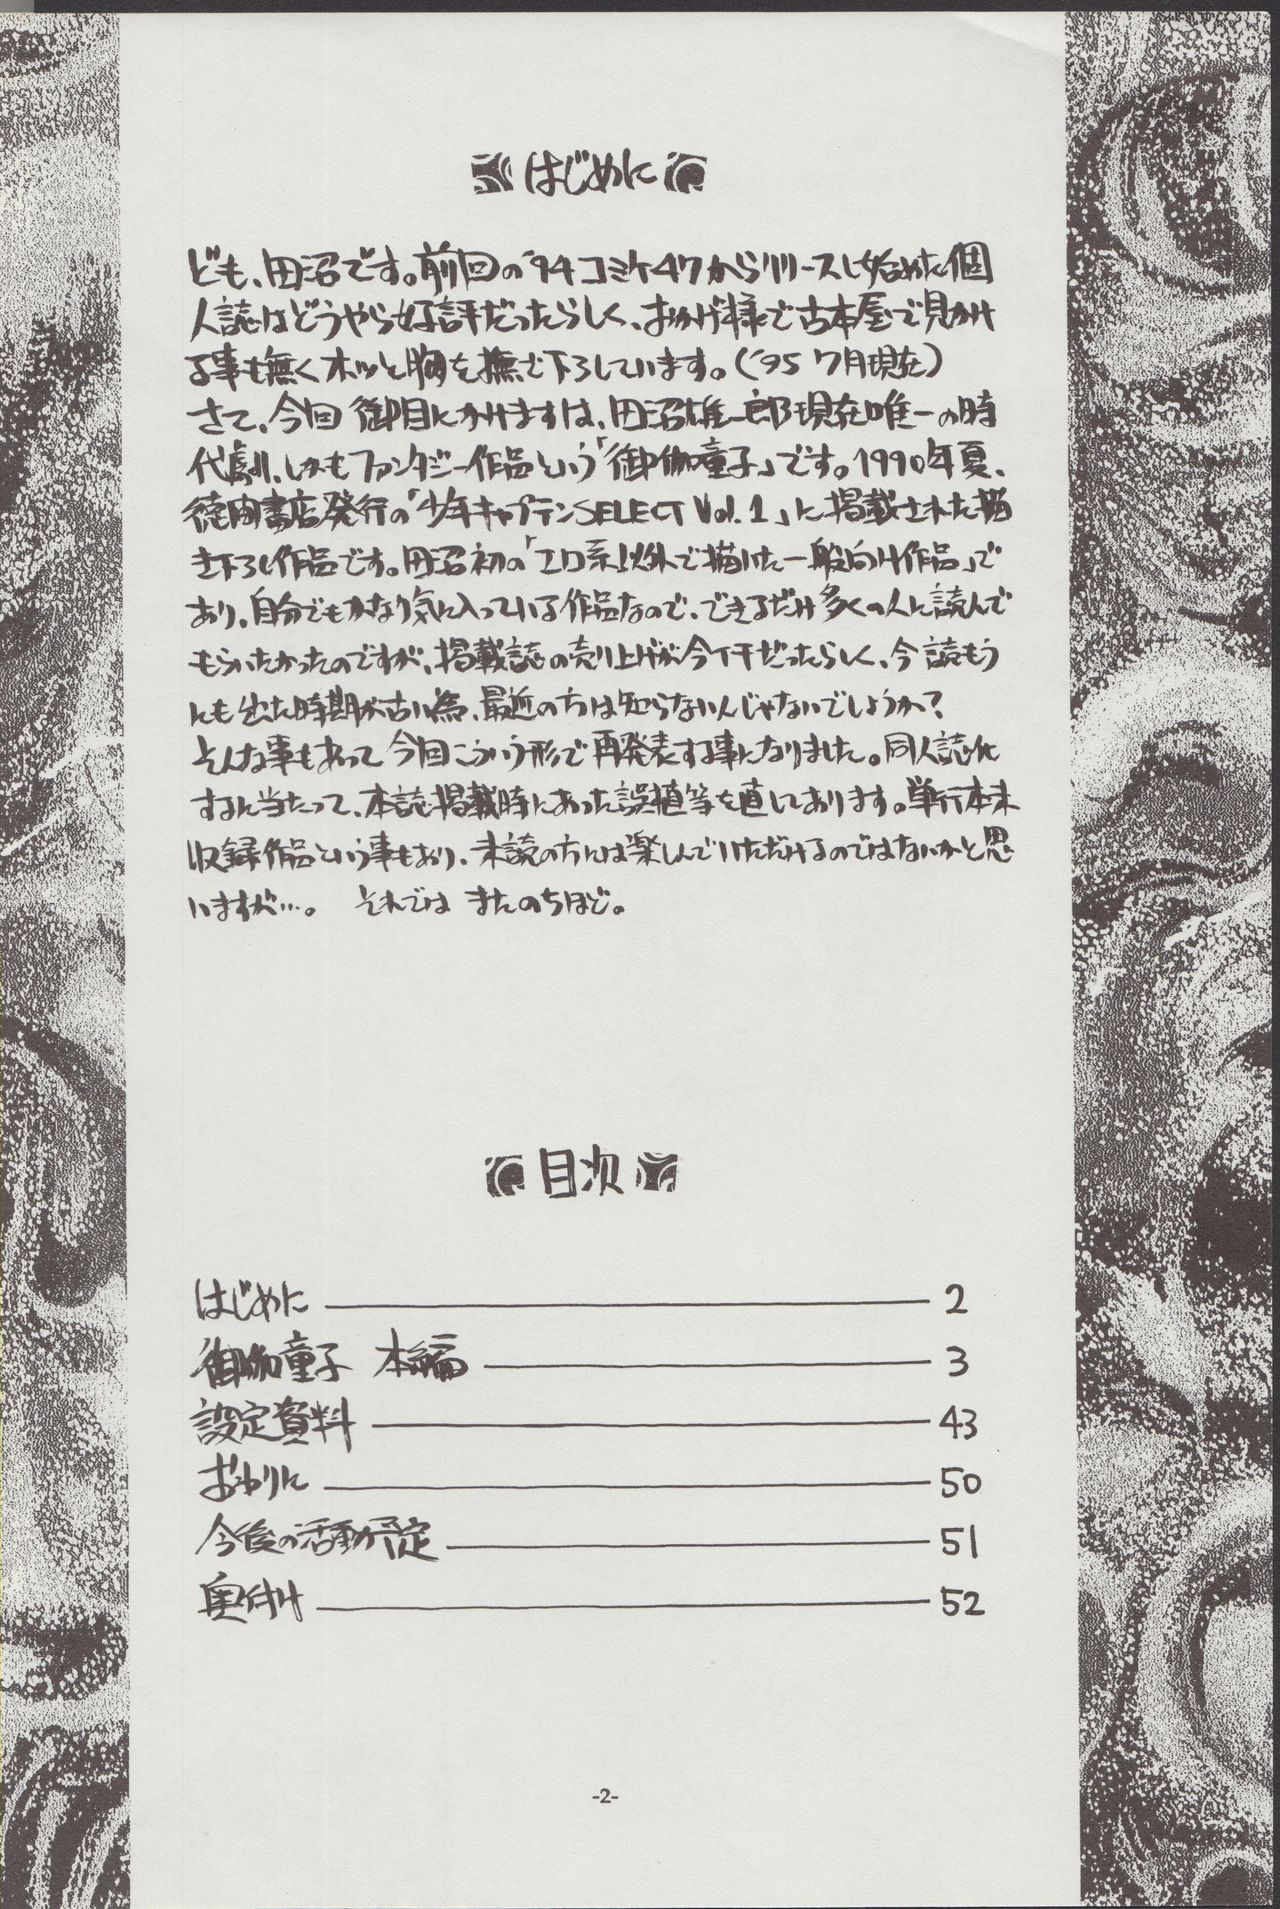 はじめに
ども、田沼です。前回の'94コミケ47からリリースし始めた個
人誌はどうやら好評だったらしく、おかげ様で古本屋で見かけ
る事も無くホッと胸を撫で下ろしています。('95 7月現在)
さて、今回御目にかけますは、田沼雄一郎現在唯一の時
代劇、しかもファンタジー作品という「御伽童子」です。1990年夏、
徳間書店発行の「少年キャプテンSELECT Vol.1」に掲載された描
き下ろし作品です。田沼初の「エロ系以外で描けた一般向け作品」で
あり、自分でもかなり気に入っている作品なので、できるだけ多くの人に読んで
もらいたかったのですが、掲載誌の売り上げが今イチだったらしく、今読もう
にも出た時期が古い為、最近の方は知らない人じゃないでしょうか?
そんな事もあって今回こういう形で再発表する事になりました。同人誌化
するに当たって、本誌掲載時にあった誤植等を直しております。単行本未
収録作品という事もあり、未読の方には楽しんでいただけるのではないかと思
いますが…。 それではまたのちほど。
目次
はじめに 2
御伽童子 本編 3
設定資料 43
おわりに 50
今後の活動予定 51
奥付け 52
-2-